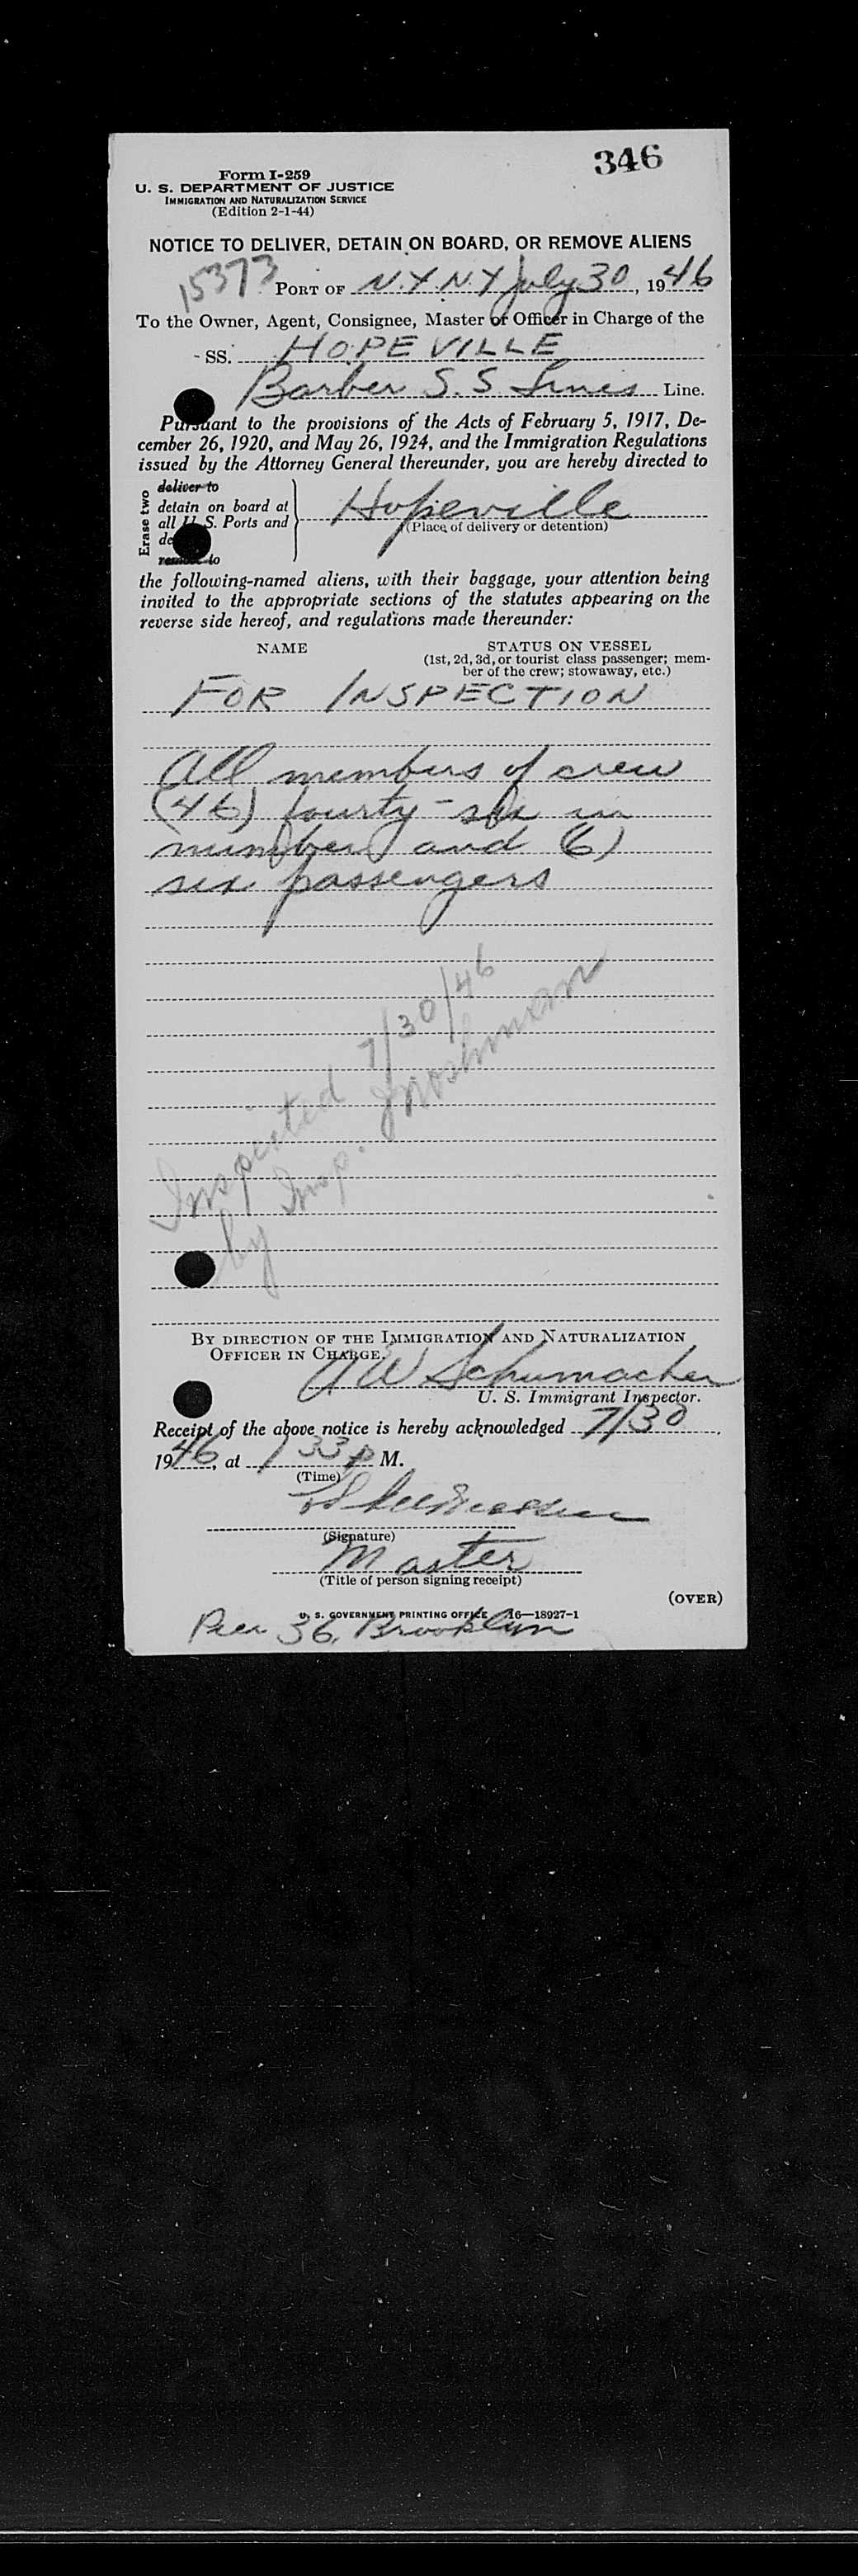 346
Form I-259
U. S. DEPARTMENT OF JUSTICE
IMMIGRATION AND NATURALIZATION SERVICE
(Edition 2-1-44)
NOTICE TO DELIVER, DETAIN ON BOARD, OR REMOVE ALIENS
15373
PORT OF N.Y. N.Y July 30, 1946
To the Owner, Agent, Consignee, Master or Officer in Charge of the
SS. HOPEVILLE
Barber S.S Lines Line.
Pursuant to the provisions of the Acts of February 5, 1917, De-
cember 26, 1920, and May 26, 1924, and the Immigration Regulations
issued by the Attorney General thereunder, you are hereby directed to
Erase two
deliver to
detain on board at
all U.S. Ports and
remove to
Hopeville
(Place of delivery or detention)
the following-named aliens, with their baggage, your attention being
invited to the appropriate sections of the statutes appearing on the
reverse side hereof, and regulations made thereunder:
NAME
STATUS ON VESSEL
(1st, 2d, 3d, or tourist class passenger; mem-
ber of the crew; stowaway, etc.)
FOR INSPECTION
All members of crew
(46) fourty-six in
number and 6)
six passengers
Inspected 7/30/46
by Insp.
BY DIRECTION OF THE IMMIGRATION AND NATURALIZATION
OFFICER IN CHARGE.
W Schumacher
U. S. Immigrant Inspector.
Receipt of the above notice is hereby acknowledged 7/30,
1946, at 1 33 p M.
(Time)
(Signature)
Master
(Title of person signing receipt)
(OVER)
U. S. GOVERNMENT PRINTING OFFICE 16—18927-1
Pier 36, Brooklyn